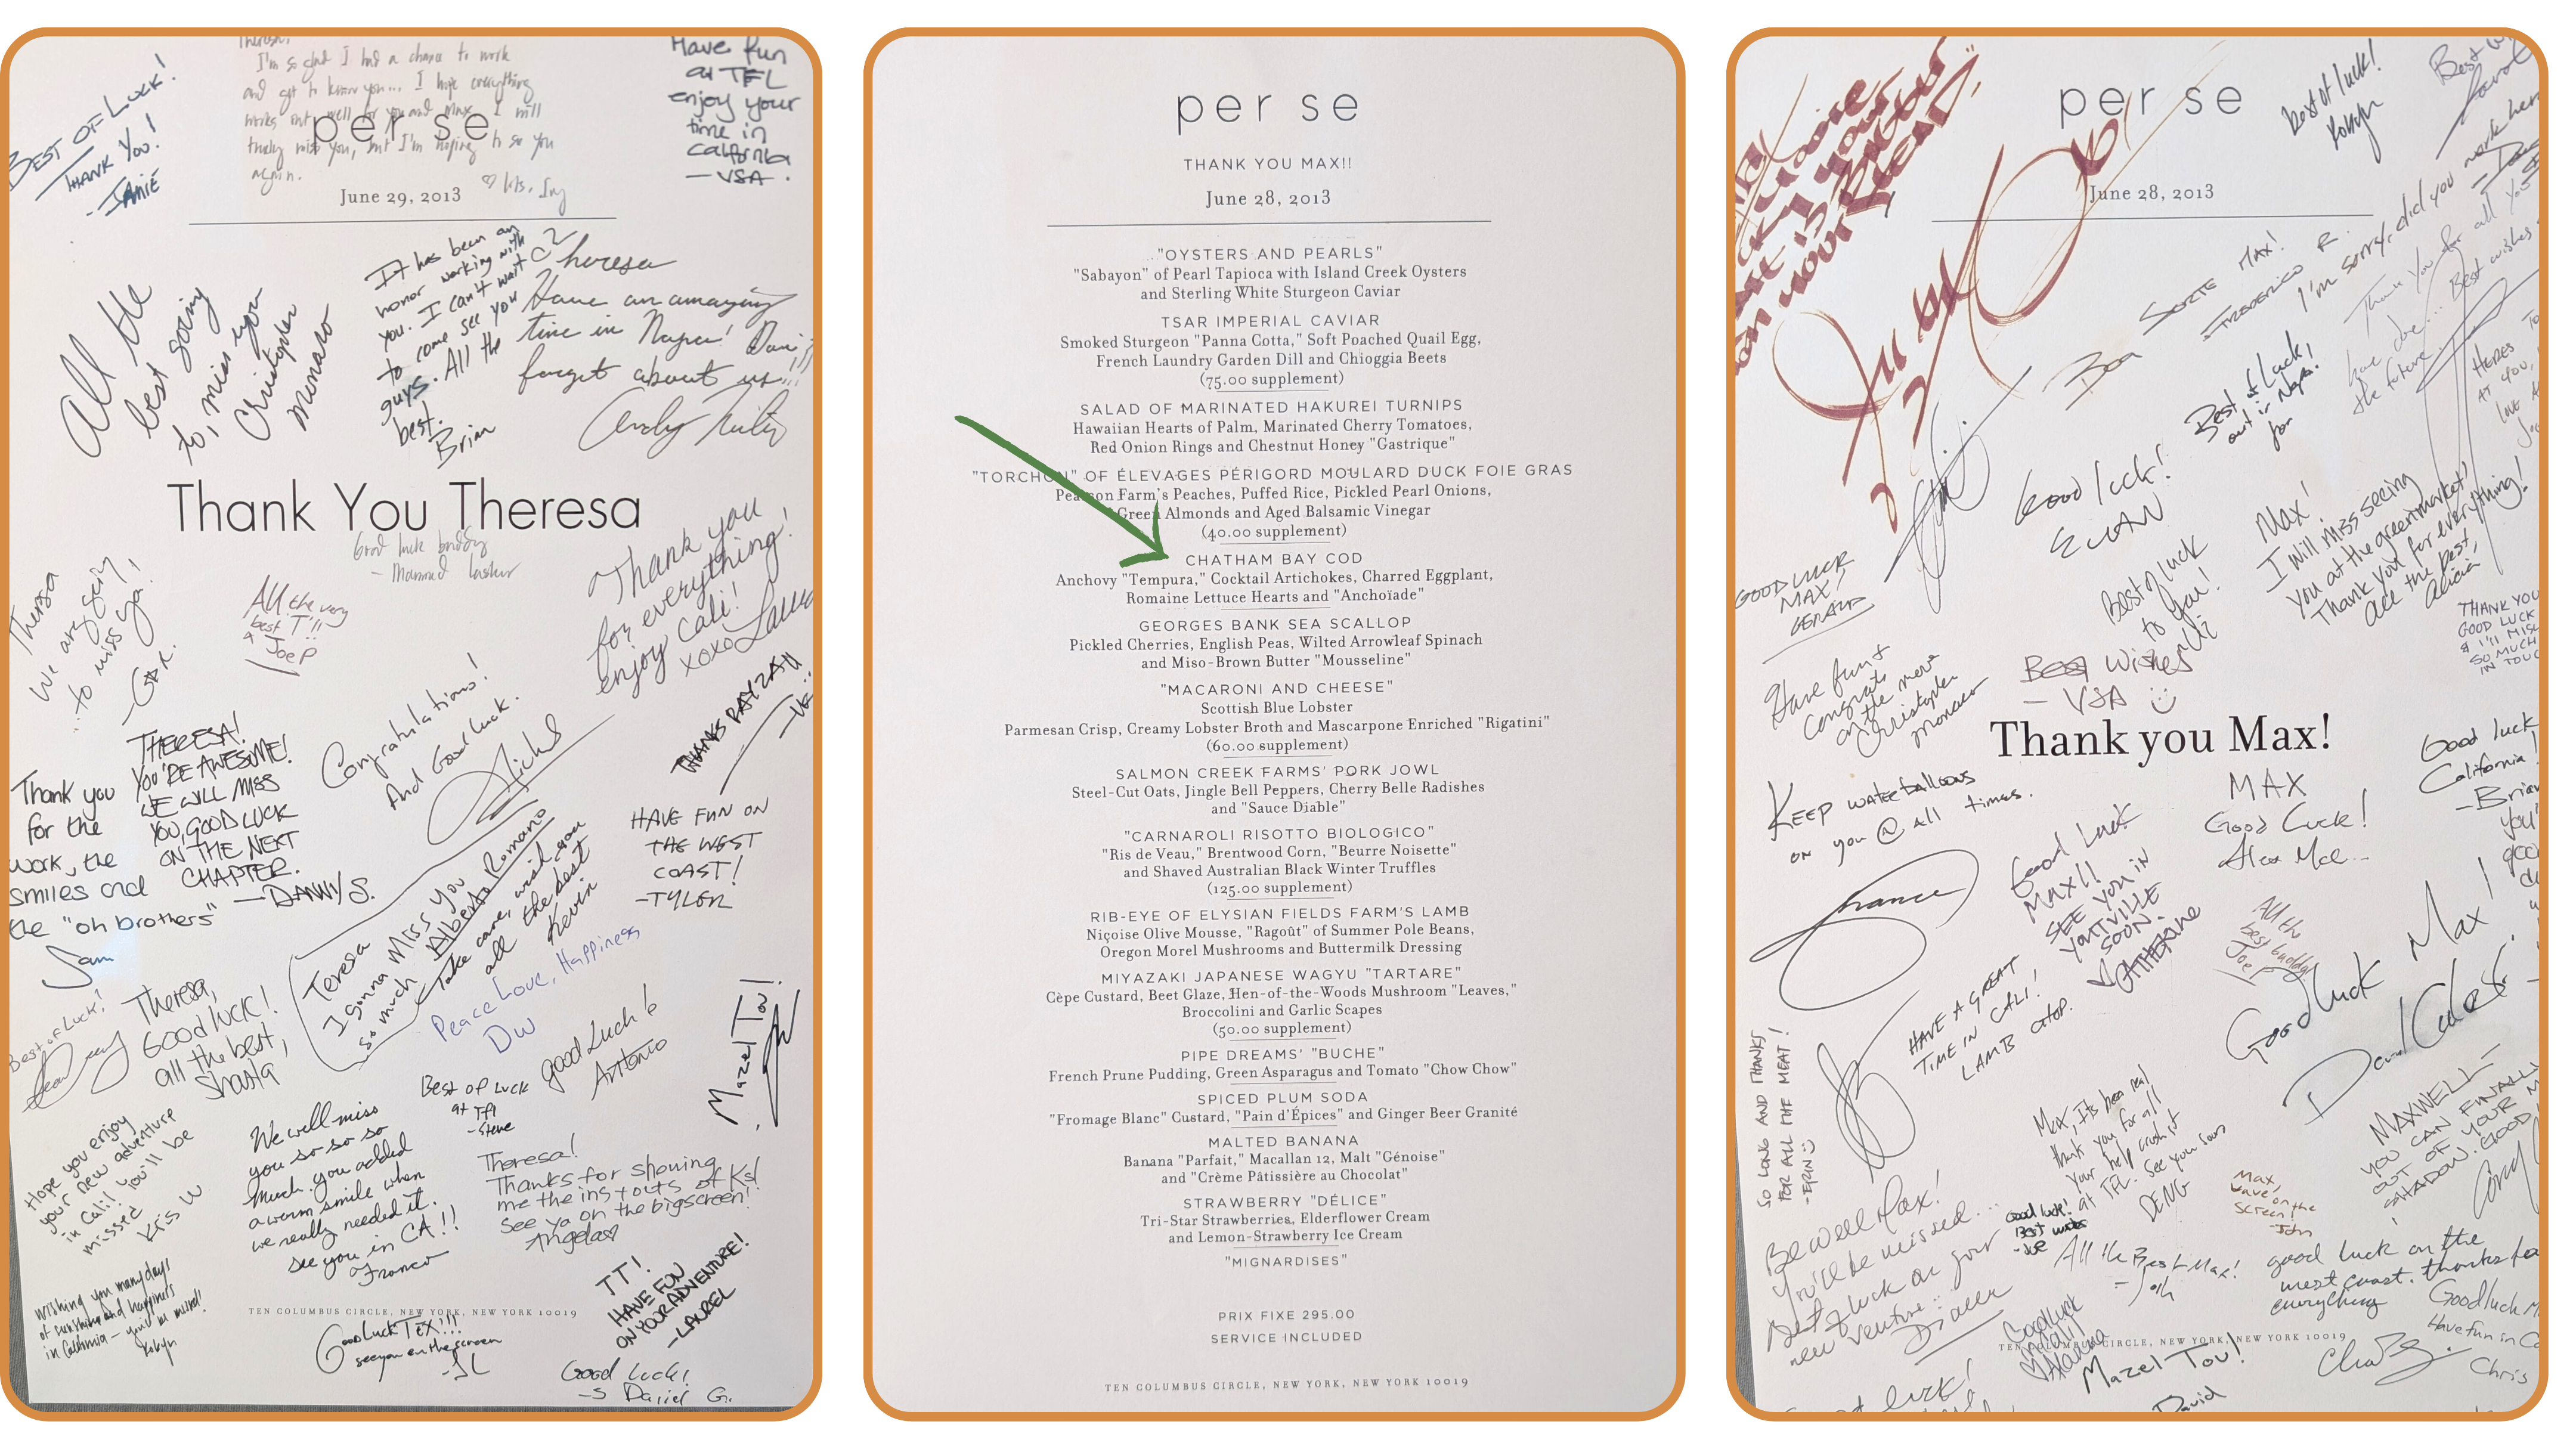 BEST OF LUCK!
THANK YOU!
- JAMIE
Theresa,
I'm so glad I had a chance to work
and get to know you... I hope everything
works out well for you and Max. I will
truly miss you, but I'm hoping to see you
again.
Have fun
at TFL
enjoy your
time in
California
- VSA.
per se
June 29, 2013
All the
best going
to, miss you
Christopher
Monaco
It has been an
honor working with
you. I can't wait
to come see you
guys. All the
best.
Brian
Theresa
Have an amazing
time in Napa! Don't
forget about us!!!
Thank You Theresa
Good luck buddy
Theresa
We are going
...to miss ya!
All the very
best T!!!
Joe P
Thank you
for everything!
enjoy Cali!
xoxo Laura
THERESA!
YOU'RE AWESOME!
WE WILL MISS
YOU, GOOD LUCK
ON THE NEXT
CHAPTER.
- DANNY S.
Congratulations!
And Good Luck.
Thank you
for the
work, the
smiles and
the "oh brothers"
Sam
HAVE FUN ON
THE WEST
COAST!
- TYLER
Teresa
I gonna Miss you
so much
Alberto Romano
Take care, wish you
all the best
Kevin
Peace Love, Happiness
DW
Best of Luck!
Theresa,
Good luck!
all the best,
Shasta
good Luck!
Antonio
Mazel Tov!
Best of Luck
at TFL
- Steve
Hope you enjoy
your new adventure
in Cali! You'll be
missed
Kris W
We will miss
you so so so
much. you added
a warm smile when
we really needed it.
see you in CA!!
Franco
Theresa!
Thanks for showing
me the ins + outs of Ks!
See ya on the bigscreen!
Angela
TT!
HAVE FUN
ON YOUR ADVENTURE!
- LAUREL
Wishing you many days
of sunshine and happiness
in California - you'll be missed!
Robyn
TEN COLUMBUS CIRCLE, NEW YORK, NEW YORK 10019
Good Luck Tex!!!
see you on the screen
- JL
Good Luck!
Daniel G.
per se
THANK YOU MAX!!
June 28, 2013
"OYSTERS AND PEARLS"
"Sabayon" of Pearl Tapioca with Island Creek Oysters
and Sterling White Sturgeon Caviar
TSAR IMPERIAL CAVIAR
Smoked Sturgeon "Panna Cotta," Soft Poached Quail Egg,
French Laundry Garden Dill and Chioggia Beets
(75.00 supplement)
SALAD OF MARINATED HAKUREI TURNIPS
Hawaiian Hearts of Palm, Marinated Cherry Tomatoes,
Red Onion Rings and Chestnut Honey "Gastrique"
"TORCHON" OF ÉLEVAGES PÉRIGORD MOULARD DUCK FOIE GRAS
Pearson Farm's Peaches, Puffed Rice, Pickled Pearl Onions,
Green Almonds and Aged Balsamic Vinegar
(40.00 supplement)
CHATHAM BAY COD
Anchovy "Tempura," Cocktail Artichokes, Charred Eggplant,
Romaine Lettuce Hearts and "Anchoïade"
GEORGES BANK SEA SCALLOP
Pickled Cherries, English Peas, Wilted Arrowleaf Spinach
and Miso-Brown Butter "Mousseline"
"MACARONI AND CHEESE"
Scottish Blue Lobster
Parmesan Crisp, Creamy Lobster Broth and Mascarpone Enriched "Rigatini"
(60.00 supplement)
SALMON CREEK FARMS' PORK JOWL
Steel-Cut Oats, Jingle Bell Peppers, Cherry Belle Radishes
and "Sauce Diable"
"CARNAROLI RISOTTO BIOLOGICO"
"Ris de Veau," Brentwood Corn, "Beurre Noisette"
and Shaved Australian Black Winter Truffles
(125.00 supplement)
RIB-EYE OF ELYSIAN FIELDS FARM'S LAMB
Niçoise Olive Mousse, "Ragoût" of Summer Pole Beans,
Oregon Morel Mushrooms and Buttermilk Dressing
MIYAZAKI JAPANESE WAGYU "TARTARE"
Cèpe Custard, Beet Glaze, Hen-of-the-Woods Mushroom "Leaves,"
Broccolini and Garlic Scapes
(50.00 supplement)
PIPE DREAMS' "BUCHE"
French Prune Pudding, Green Asparagus and Tomato "Chow Chow"
SPICED PLUM SODA
"Fromage Blanc" Custard, "Pain d'Épices" and Ginger Beer Granité
MALTED BANANA
Banana "Parfait," Macallan 12, Malt "Génoise"
and "Crème Pâtissière au Chocolat"
STRAWBERRY "DÉLICE"
Tri-Star Strawberries, Elderflower Cream
and Lemon-Strawberry Ice Cream
"MIGNARDISES"
PRIX FIXE 295.00
SERVICE INCLUDED
TEN COLUMBUS CIRCLE, NEW YORK, NEW YORK 10019
per se
June 28, 2013
Best of luck!
Robyn
Boa SORTE MAX!
FREDERICO R.
I'm sorry, did you work here
Best of Luck,
out in Napa.
Jon
Good luck!
EVAN
Max!
I will miss seeing
you at the greenmarket!
Thank you for everything!
all the best,
Alicia
GOOD LUCK
MAX!
GERALD
Best of luck
to you!
Best Wishes
- VSA
Have fun &
congrats
on the move
Christopher
monaco
Thank you Max!
KEEP water balloons
on you @ all times.
MAX
Good Luck!
Good luck
California!
- Brian
Franco
Good Luck
MAX!!
SEE YOU IN
YOUNTVILLE
SOON.
CATHERINE
All the
best buddy
Joe P
Good luck Max!
HAVE A GREAT
TIME IN CALI,
LAMB CHOP.
SO LONG AND THANKS
FOR ALL THE MEAT!
- ERIN
Max, Its been real
thank you for all
your help crush it
at TFL. See you soon
DENG
MAXWELL
YOU CAN FINALLY
OUT OF YOUR
SHADOW. GOOD
Max,
wave on the
screen!
- John
Be well Max!
You'll be missed...
Best of luck on your
new venture
Good luck!
Best wishes
- Joe
All the Best Max!
good luck on the
west coast. thanks for
everything
Good luck
Have fun in
Chris
TEN COLUMBUS CIRCLE, NEW YORK, NEW YORK 10019
Mazel Tov!
David